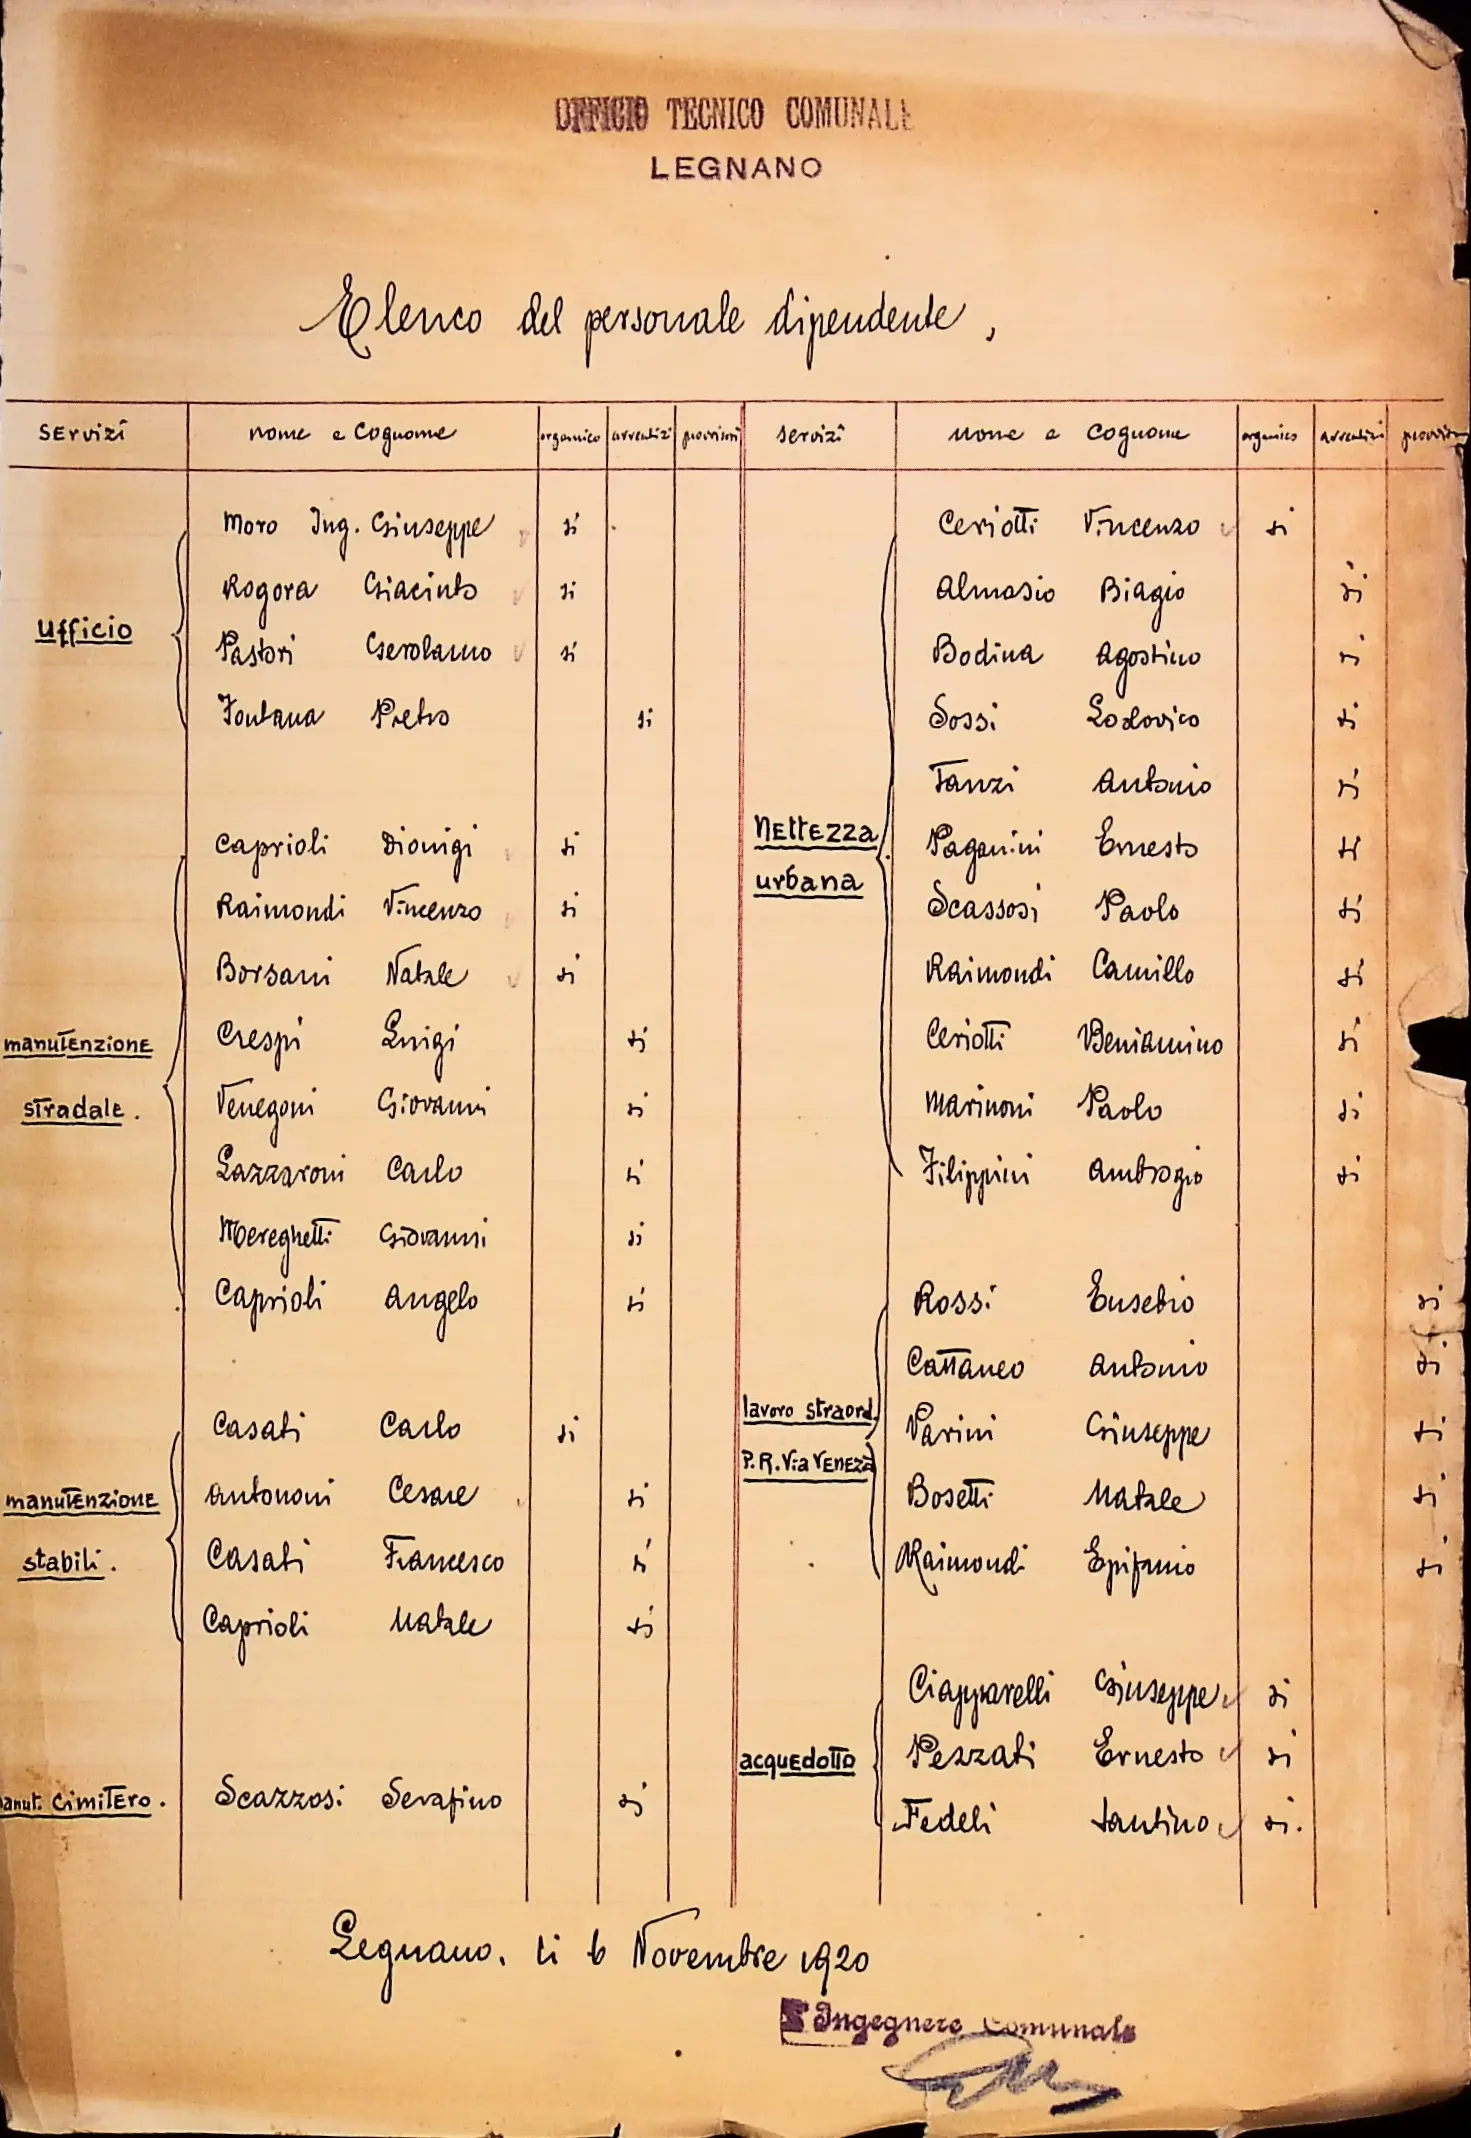 UFFICIO TECNICO COMUNALE
LEGNANO
Elenco del personale dipendente,
Servizi nome e Cognome organico avventizi provvisori
Ufficio
Moro Ing. Giuseppe si
Rogora Giacinto si
Pastori Gerolamo si
Fontana Pietro si
manutenzione
stradale.
Caprioli Dionigi si
Raimondi Vincenzo si
Borsani Natale si
Crespi Luigi si
Venegoni Giovanni si
Lazzaroni Carlo si
Mereghetti Giovanni si
Caprioli Angelo si
manutenzione
stabili.
Casati Carlo si
Antononi Cesare si
Casati Francesco si
Caprioli Natale si
manut. Cimitero. Scazzosi Serafino si
servizi nome e cognome organico avventizi provvisori
Nettezza
urbana
Ceriotti Vincenzo si
Almasio Biagio si
Bodina Agostino si
Sossi Lodovico si
Tanzi Antonio si
Paganini Ernesto si
Scassosi Paolo si
Raimondi Camillo si
Ceriotti Beniamino si
Marinoni Paolo si
Filippini Ambrogio si
lavoro straord.
P.R. Via Venezia
Rossi Eusebio si
Cattaneo Antonio si
Parini Giuseppe si
Bosetti Natale si
Raimondi Epifanio si
acquedotto
Ciapparelli Giuseppe si
Pezzati Ernesto si
Fedeli Santino si.
Legnano, li 6 Novembre 1920
L'Ingegnere Comunale